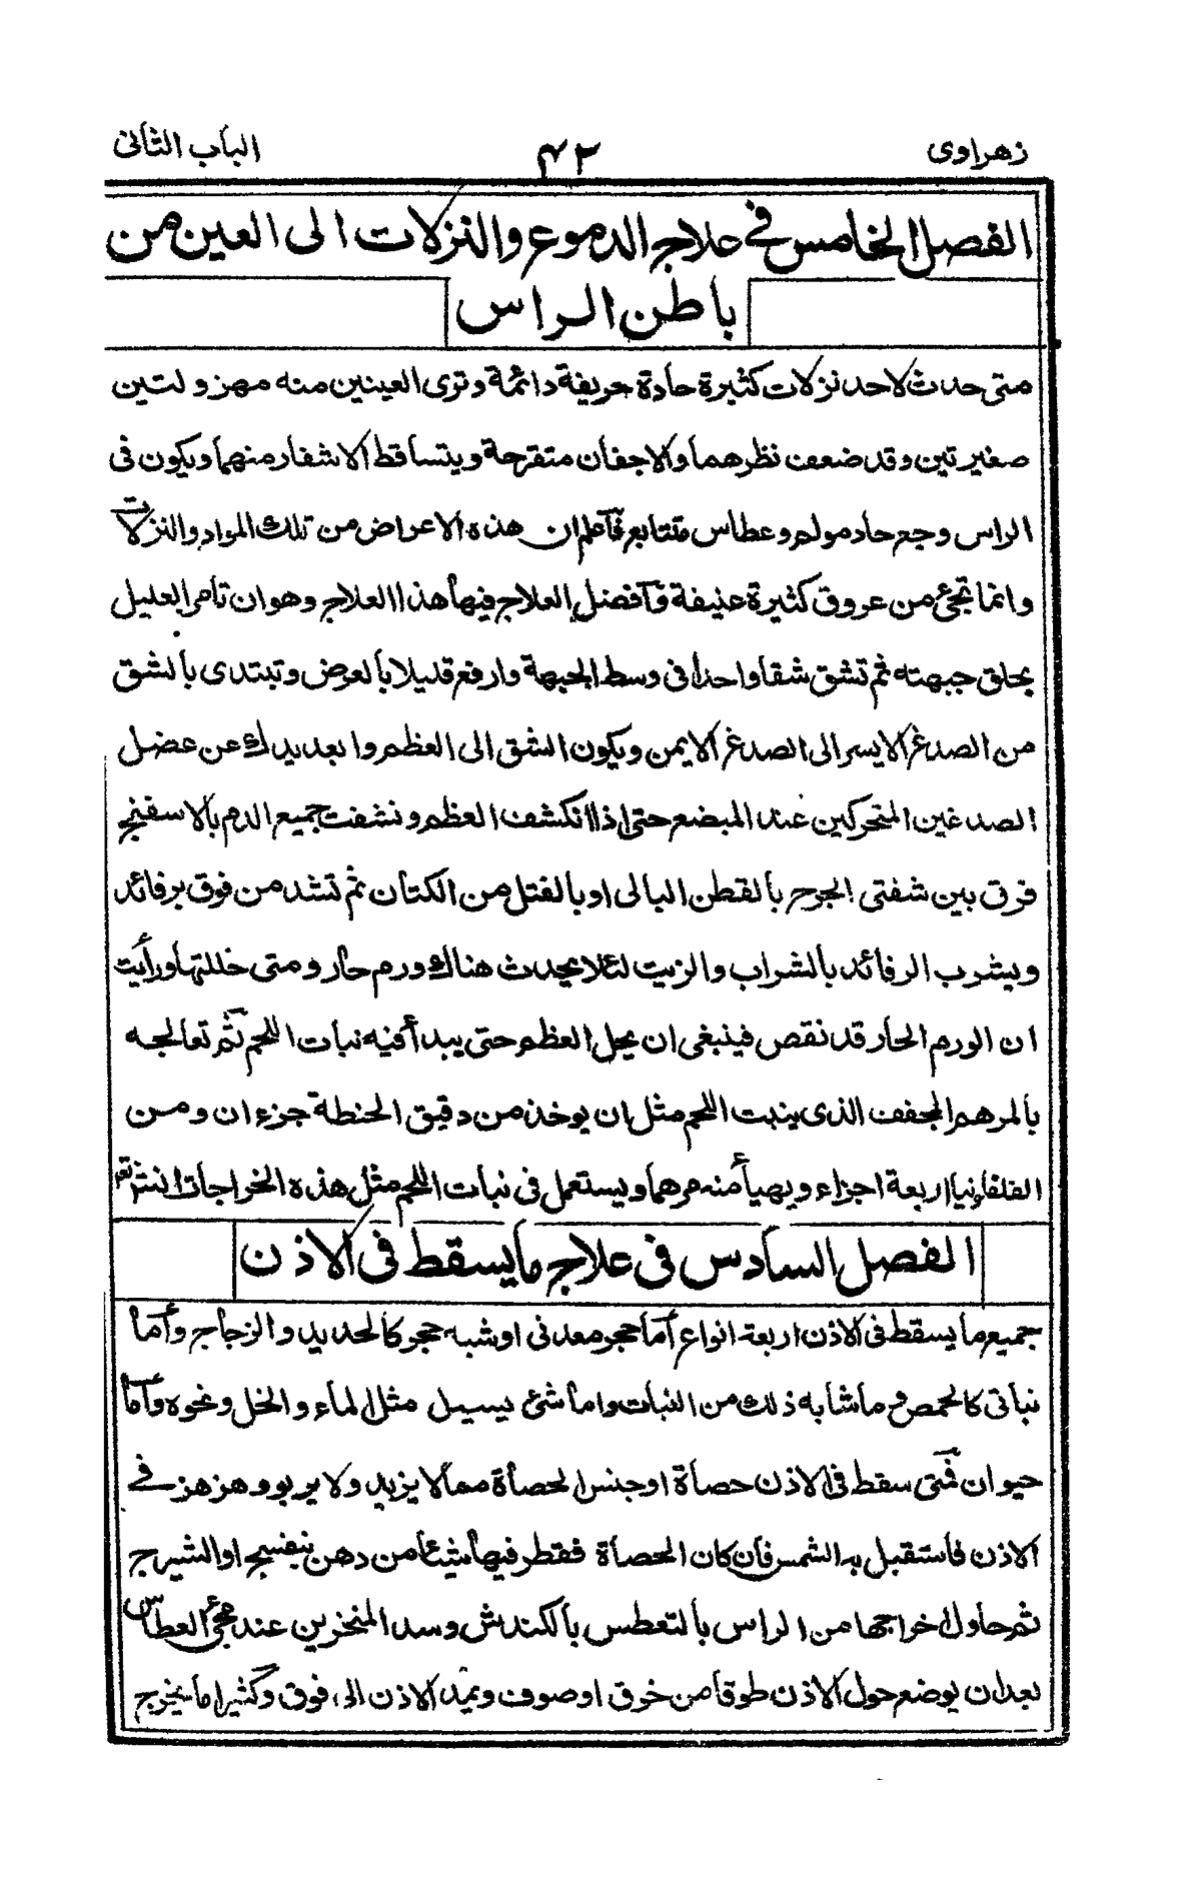 زهراوی
۴۲
الباب الثانی
الفصل الخامس فے علاج الدموع والنزلات الی العین من
باطن الراس
متی حدث لاحد نزلات کثیرة حادة حریفة دائمة وتری العینین منه مهزولتین
صغیرتین وقد ضعف نظرهما والاجفان متقرحة ویتساقط الاشفار منهما ویکون فی
الراس وجع حاد مولم وعطاس متتابع فاعلم ان هذه الاعراض من تلك المواد والنزلات
وانما تجئ من عروق کثیرة عنیفة فافضل العلاج فیها هذا العلاج وهو ان تامر العلیل
بحلق جبهته ثم تشق شقا واحدا فی وسط الجبهة وارفع قلیلا بالعرض وتبتدی بالشق
من الصدغ الایسر الی الصدغ الایمن ویکون الشق الی العظم وابعد یدك عن عضل
الصدغین المتحرکین عند المبضع حتی اذا انکشف العظم ونشفت جمیع الدم بالاسفنج
فرق بین شفتی الجرح بالقطن البالی او بالفتل من الکتان ثم تشد من فوق برفائد
ویشرب الرفائد بالشراب والزیت لئلا یحدث هناك ورم حار ومتی خللتها ورأیت
ان الورم الحار قد نقص فینبغی ان یحل العظم حتی یبدأ فیه نبات اللحم ثم تعالجه
بالمرهم المجفف الذی ینبت اللحم مثل ان یوخذ من دقیق الحنطة جزءان ومن
الفلفلونیا اربعة اجزاء ویهیأ منه مرهما ویستعمل فی نبات اللحم مثل هذه الخراجات
الفصل السادس فی علاج مایسقط فی الاذن
جمیع ما یسقط فی الاذن اربعة انواع أما حجر معدنی او شبه حجر کالحدید والزجاج وأما
نباتی کالحمص وما شابه ذلك من النبات واما شئ یسیل مثل الماء والخل ونحوه وأما
حیوان فمتی سقط فی الاذن حصاة او جنس الحصاة مما لا یزید ولا یربو وهزهز فے
الاذن فاستقبل به الشمس فان کان الحصاة فقطر فیها شیئا من دهن بنفسج او الشیرج
ثم حاول اخراجها من الراس بالتعطس بالکندش وسد المنخرین عند مجئ العطاس
بعد ان یوضع حول الاذن طوقا من خرق او صوف وتمد الاذن الی فوق وکثیرا ما یخرج